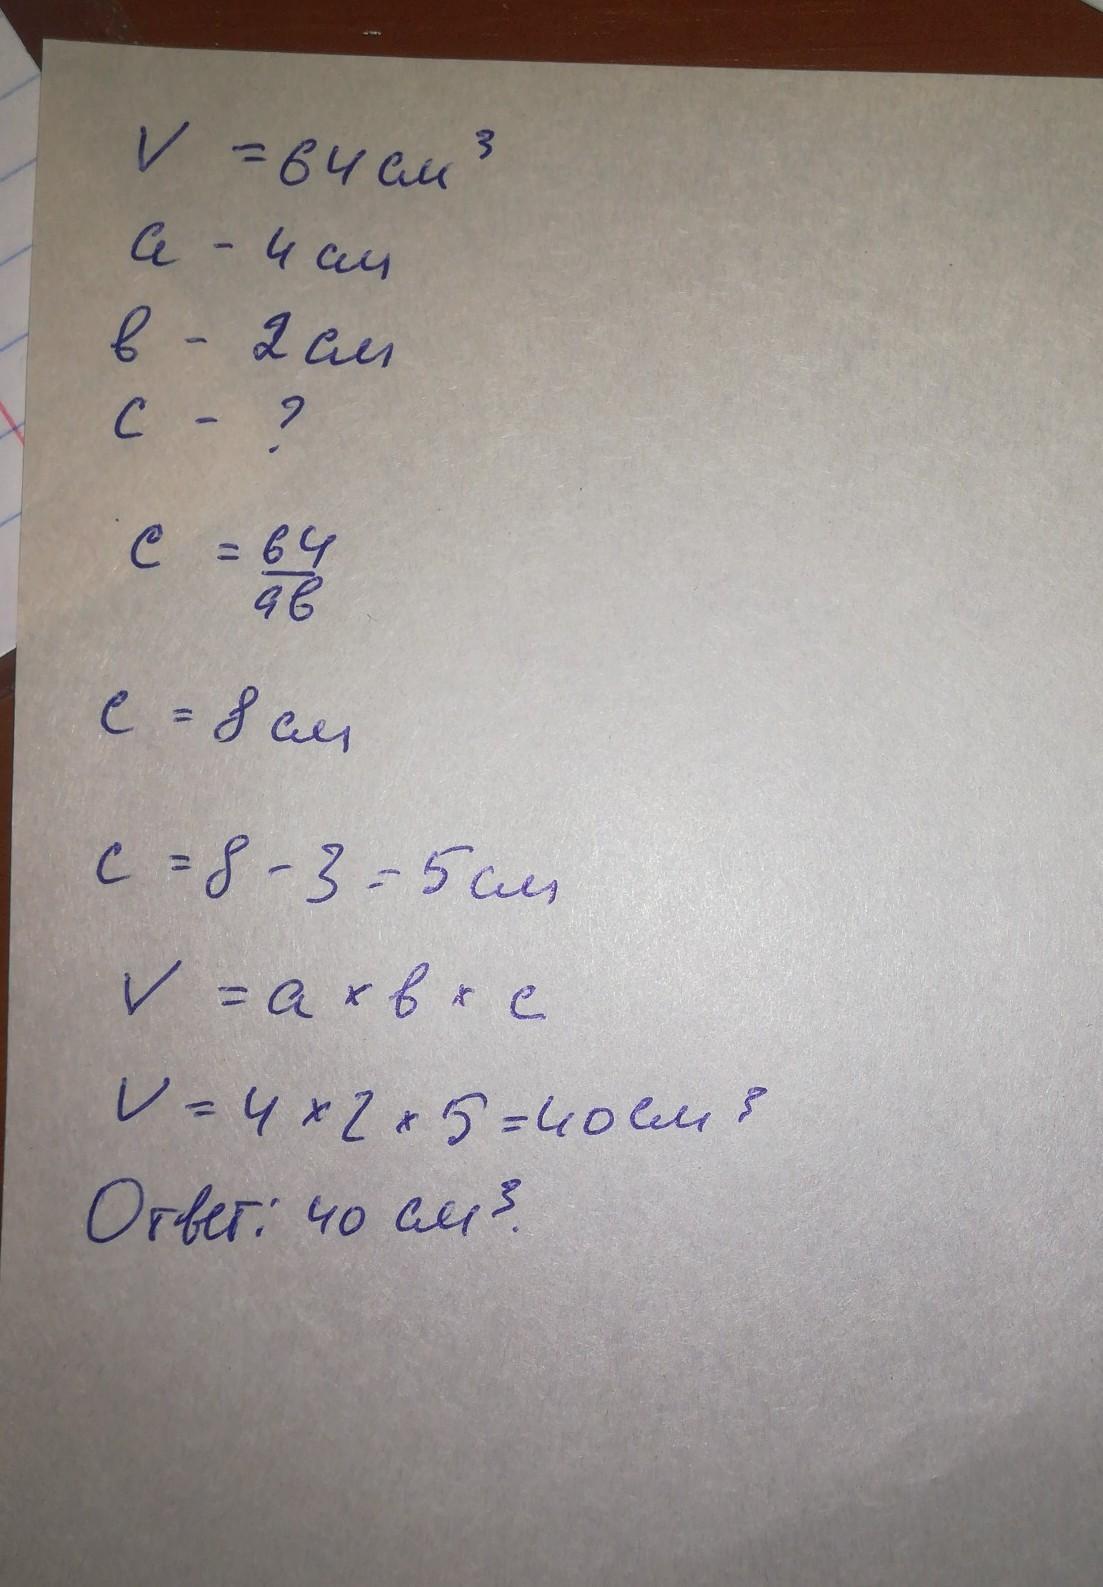 V = 64 см³
a - 4 см
в - 2 см
c - ?
c = 64/aв
c = 8 см
c = 8 - 3 = 5 см
V = a × в × c
V = 4 × 2 × 5 = 40 см³
Ответ: 40 см³.